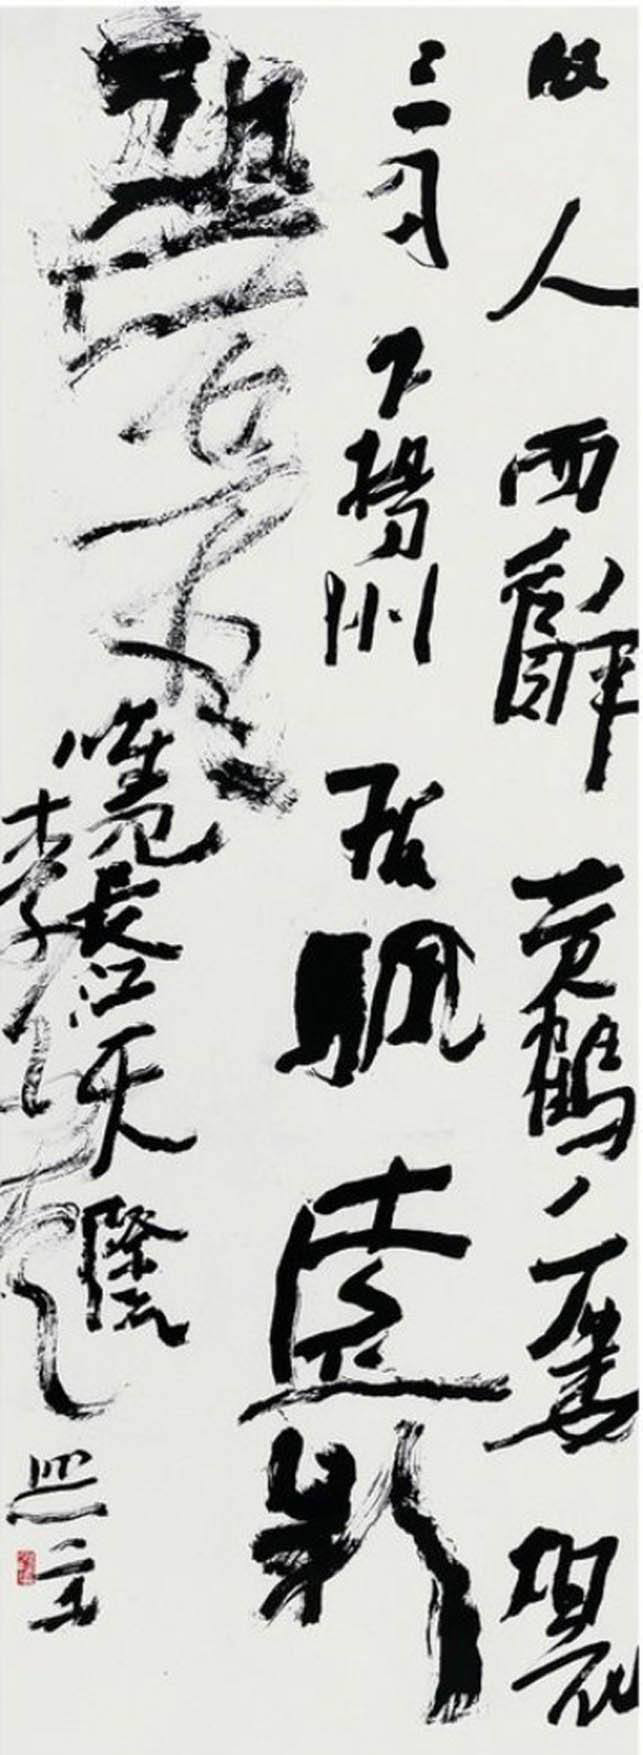 故人西辭黃鶴樓煙花
三月下揚州孤帆遠影
碧空尽唯見長江天際流
李